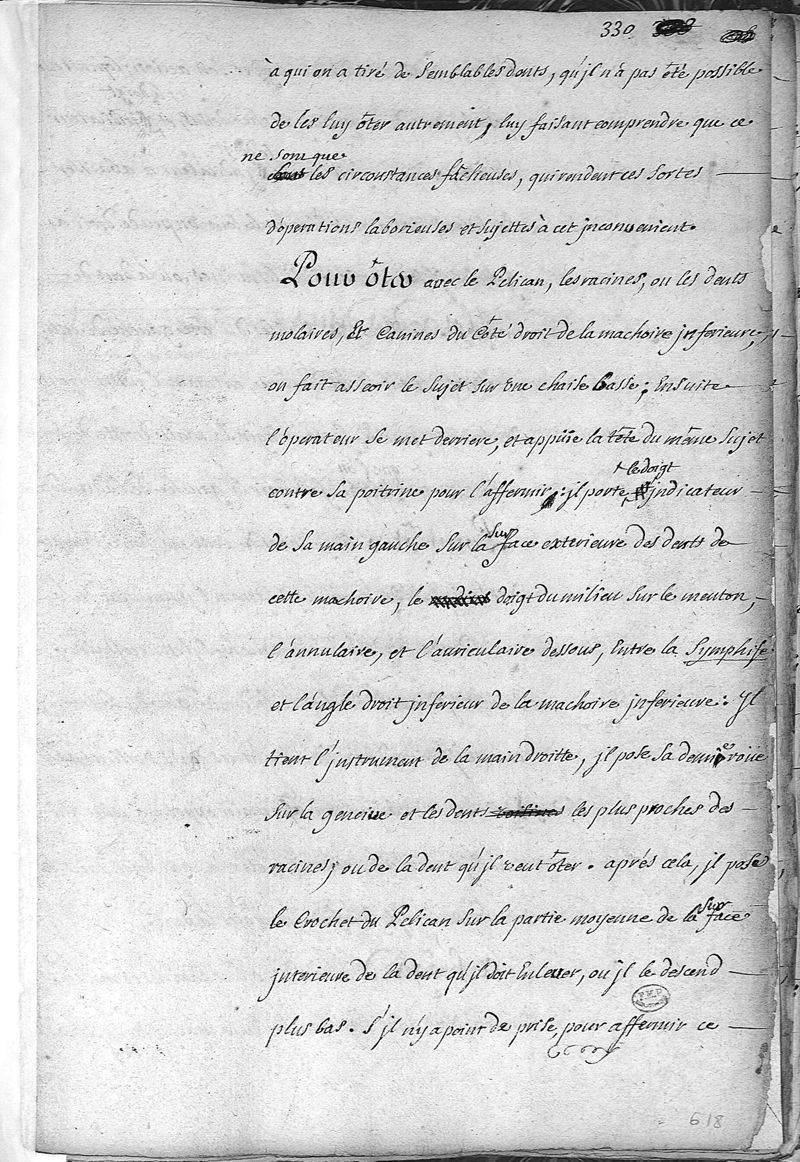 330
à qui on a tiré de semblables dents, qu'jl n'a pas êté possible
de les luy ôter autrement, luy faisant comprendre que ce
ne sont que
les circonstances fâcheuses, qui rendent ces sortes
d'operations laborieuses et sujettes à cet jnconvenient.
Pour ôter avec le Pelican, les racines, ou les dents
molaires, Et Canines du Côté droit de la machoire jnferieure,
on fait asseoir le sujet sur une chaise basse; Ensuite
l'operateur se met derriere, et appuïe la tête du même sujet
le doigt
contre sa poitrine pour l'affermir: jl porte jndicateur
de sa main gauche sur la surface exterieure des dents de
cette machoire, le doigt du milieu sur le menton,
l'annulaire, et l'auriculaire dessous, Entre la Symphise
et l'angle droit jnferieur de la machoire jnferieure: Jl
tient l'jnstrument de la main droitte, jl pose sa demie roüe
sur la gencive et les dents voisines les plus proches des
racines; ou de la dent qu'jl veut ôter. aprés cela, jl pose
le Crochet du Pelican sur la partie moyenne de la surface
jnterieure de la dent qu'jl doit Enlever, ou jl le descend
plus bas. S'jl n'y a point de prise, pour affermir ce
618